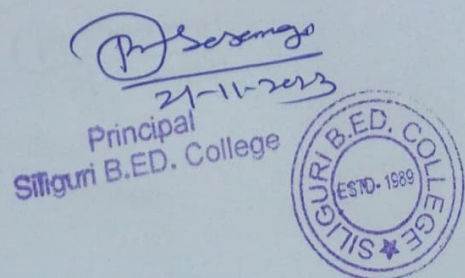 21-11-2023
Principal
Siliguri B.ED. College
SILIGURI B.ED. COLLEGE
ESTD-1989